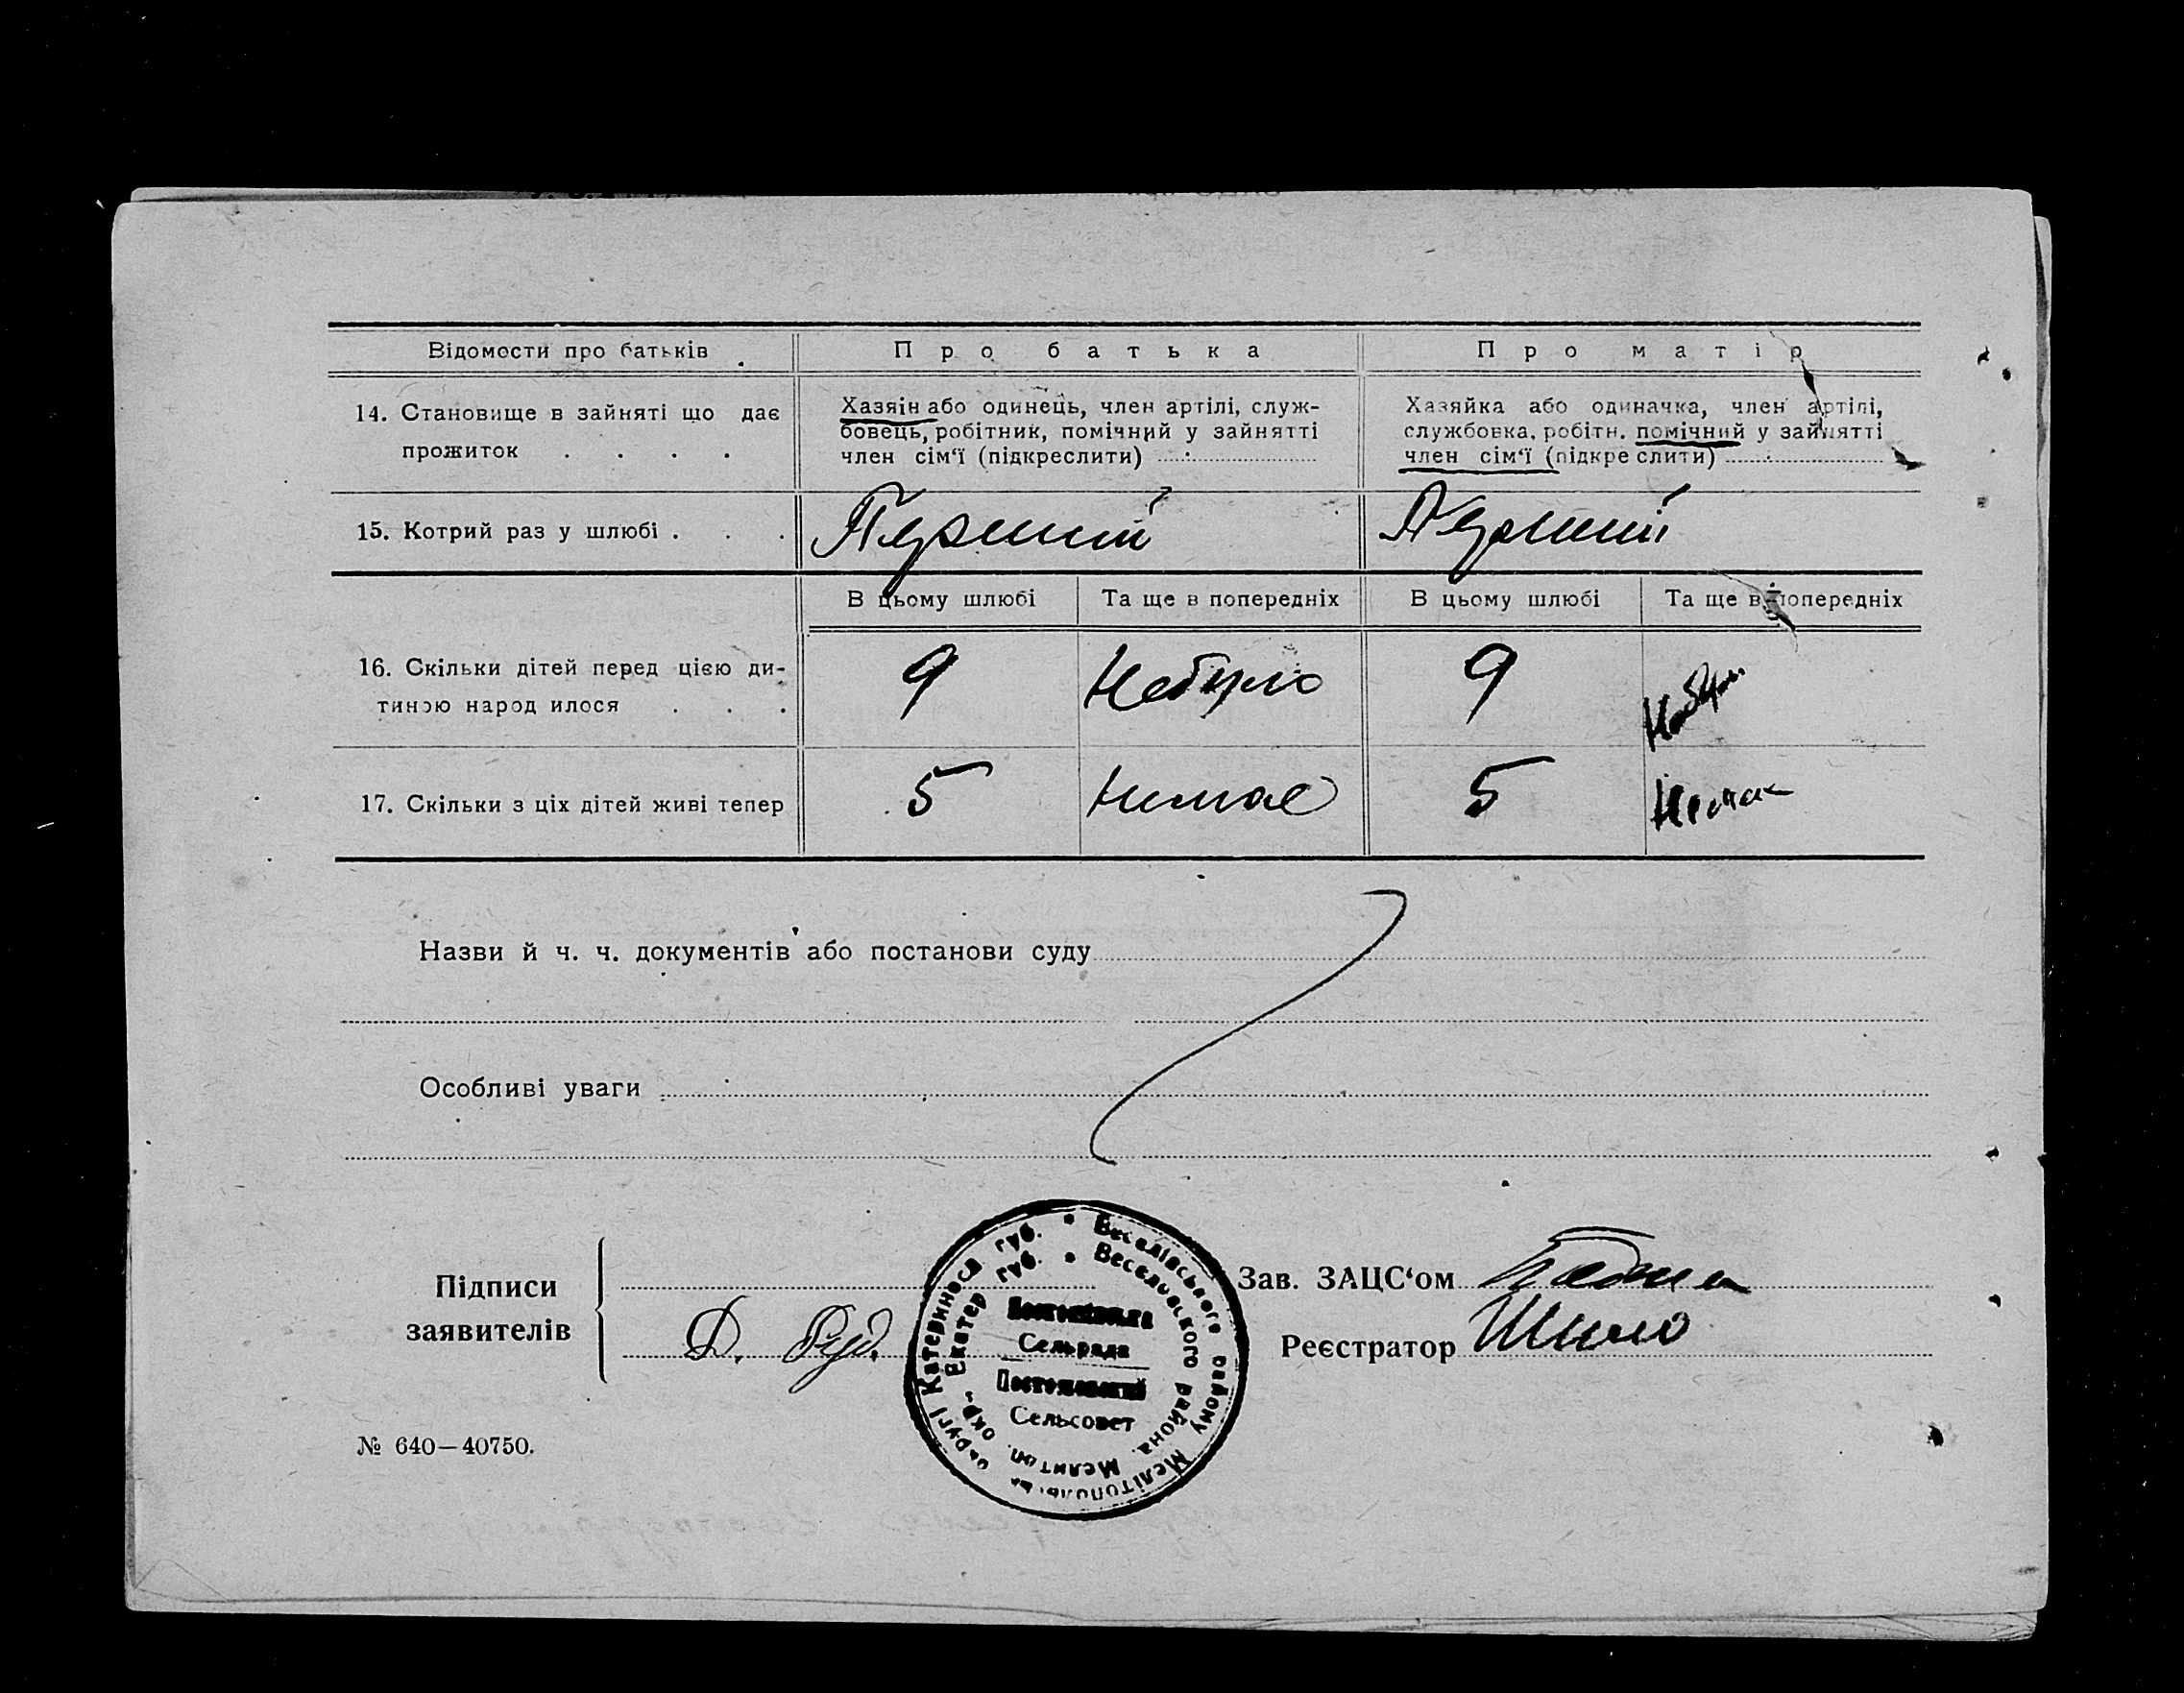 Відомости про батьків
Про батька
Про матір
14. Становище в зайняті що дає
прожиток . . . .
Хазяїн або одинець, член артілі, служ-
бовець, робітник, помічний у зайнятті
член сім'ї (підкреслити)
Хазяйка або одиначка, член артілі,
службовка, робітн. помічний у зайнятті
член сім'ї (підкреслити)
15. Котрий раз у шлюбі . . .
Перший
Перший
В цьому шлюбі
Та ще в попередніх
В цьому шлюбі
Та ще в попередніх
16. Скільки дітей перед цією ди-
тиною народилося . . .
9
Небуло
9
17. Скільки з ціх дітей живі тепер
5
Нимае
5
Назви й ч. ч. документів або постанови суду
Особливі уваги
Підписи
заявителів
Д. Руд.
Веселівського району Мелітопольськ округі Катеринося губ.
Веселовского района. Мелитоп. окр. Екатер губ.
Сельрада
Сельсовет
Зав. ЗАЦС‘ом
Реєстратор Шило
№ 640—40750.